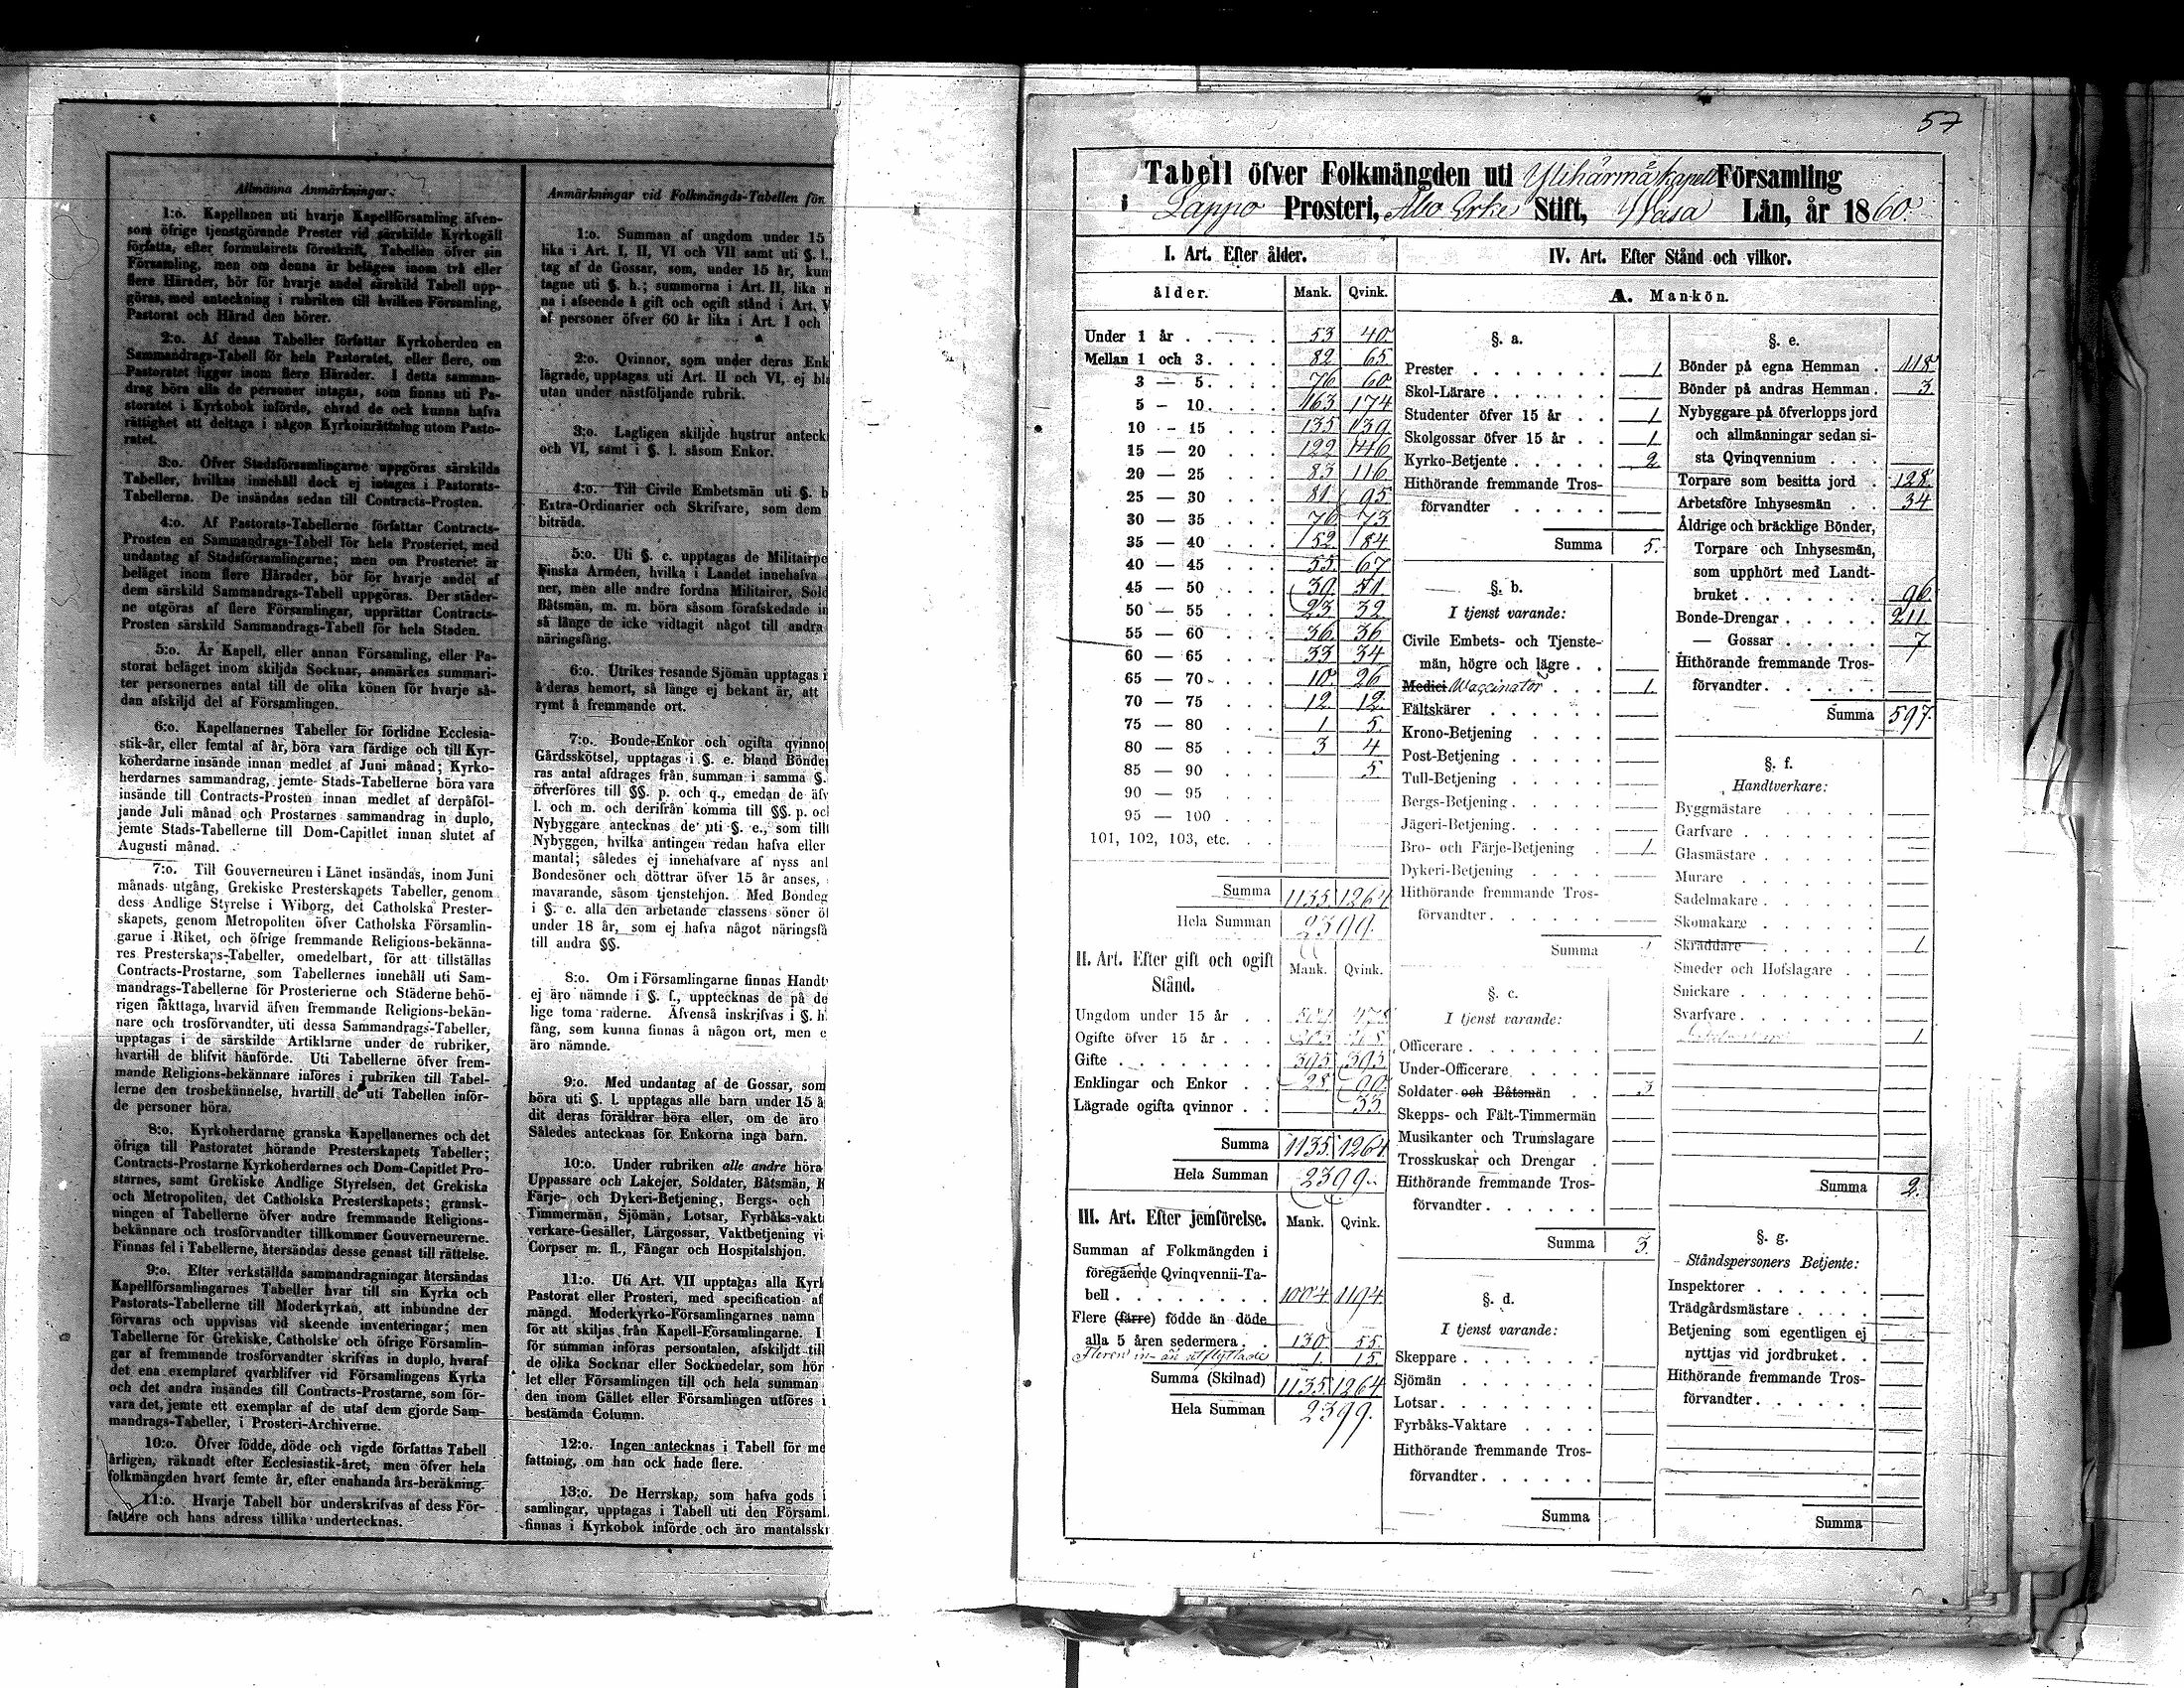 Allmänna Anmärkningar.
1:o. Kapellanen uti hvarje Kapellförsamling äfven-
som öfrige tjenstgörande Prester vid särskilde Kyrkogäll
författa, efter formulairets föreskrift, Tabellen öfver sin
Församling, men om denna är belägen inom två eller
flere Härader, bör för hvarje andel särskild Tabell upp-
göras, med anteckning i rubriken till hvilken Församling,
Pastorat och Härad den hörer.
2:o. Af dessa Tabeller författar Kyrkoherden en
Sammandrags-Tabell för hela Pastoratet, eller flere, om
Pastoratet ligger inom flere Härader. I detta samman-
drag böra alla de personer intagas, som finnas uti Pa-
storatet i Kyrkobok införde, ehvad de ock kunna hafva
rättighet att deltaga i någon Kyrkoinrättning utom Pasto-
ratet.
3:o. Öfver Stadsförsamlingarne uppgöras särskilda
Tabeller, hvilkas innehåll dock ej intages i Pastorats-
Tabellerna. De insändas sedan till Contracts-Prosten.
4:o. Af Pastorats-Tabellerne författar Contracts-
Prosten en Sammandrags-Tabell för hela Prosteriet, med
undantag af Stadsförsamlingarne; men om Prosteriet är
beläget inom flere Härader, bör för hvarje andel af
dem särskild Sammandrags-Tabell uppgöras. Der städer-
ne utgöras af flere Församlingar, upprättar Contracts-
Prosten särskild Sammandrags-Tabell för hela Staden.
5:o. Är Kapell, eller annan Församling, eller Pa-
storat beläget inom skiljda Socknar, anmärkes summari-
ter personernes antal till de olika könen för hvarje så-
dan afskiljd del af Församlingen.
6:o. Kapellanernes Tabeller för förlidne Ecclesia-
stik-år, eller femtal af år, böra vara färdige och till Kyr-
koherdarne insände innan medlet af Juni månad; Kyrko-
herdarnes sammandrag, jemte Stads-Tabellerne böra vara
insände till Contracts-Prosten innan medlet af derpåföl-
jande Juli månad och Prostarnes sammandrag in duplo,
jemte Stads-Tabellerne till Dom-Capitlet innan slutet af
Augusti månad.
7:o. Till Gouverneuren i Länet insändas, inom Juni
månads utgång, Grekiske Presterskapets Tabeller, genom
dess Andlige Styrelse i Wiborg, det Catholska Prester-
skapets, genom Metropoliten öfver Catholska Församlin-
garne i Riket, och öfrige fremmande Religions-bekänna-
res Presterskaps-Tabeller, omedelbart, för att tillställas
Contracts-Prostarne, som Tabellernes innehåll uti Sam-
mandrags-Tabellerne för Prosterierne och Städerne behö-
rigen iakttaga, hvarvid äfven fremmande Religions-bekän-
nare och trosförvandter, uti dessa Sammandrags-Tabeller,
upptagas i de särskilde Artiklarne under de rubriker,
hvartill de blifvit hänförde. Uti Tabellerne öfver frem-
mande Religions-bekännare införes i rubriken till Tabel-
lerne den trosbekännelse, hvartill de uti Tabellen inför-
de personer höra.
8:o. Kyrkoherdarne granska Kapellanernes och det
öfriga till Pastoratet hörande Presterskapets Tabeller;
Contracts-Prostarne Kyrkoherdarnes och Dom-Capitlet Pro-
starnes, samt Grekiske Andlige Styrelsen, det Grekiska
och Metropoliten, det Catholska Presterskapets; gransk-
ningen af Tabellerne öfver andre fremmande Religions-
bekännare och trosförvandter tillkommer Gouverneurerne.
Finnas fel i Tabellerne, återsändas desse genast till rättelse.
9:o. Efter verkställda sammandragningar återsändas
Kapellförsamlingarnes Tabeller hvar till sin Kyrka och
Pastorats-Tabellerne till Moderkyrkan, att inbundne der
förvaras och uppvisas vid skeende inventeringar; men
Tabellerne för Grekiske, Catholske och öfrige Församlin-
gar af fremmande trosförvandter skrifvas in duplo, hvaraf
det ena exemplaret qvarblifver vid Församlingens Kyrka
och det andra insändes till Contracts-Prostarne, som för-
vara det, jemte ett exemplar af de utaf dem gjorde Sam-
mandrags-Tabeller, i Prosteri-Archiverne.
10:o. Öfver födde, döde och vigde författas Tabell
årligen, räknadt efter Ecclesiastik-året, men öfver hela
folkmängden hvart femte år, efter enahanda års-beräkning.
11:o. Hvarje Tabell bör underskrifvas af dess För-
fattare och hans adress tillika undertecknas.
Anmärkningar vid Folkmängds-Tabellen för
1:o. Summan af ungdom under 15
lika i Art. I, II, VI och VII samt uti §. l.
tag af de Gossar, som, under 15 år, kun
tagne uti §. h.; summorna i Art. II, lika
na i afseende å gift och ogift stånd i Art. V
af personer öfver 60 år lika i Art. I och
2:o. Qvinnor, som under deras Enk
lägrade, upptagas uti Art. II och VI, ej bla
utan under nästföljande rubrik.
3:o. Lagligen skiljde hustrur anteck
och VI, samt i §. l. såsom Enkor.
4:o. Till Civile Embetsmän uti §. b
Extra-Ordinarier och Skrifvare, som dem
biträda.
5:o. Uti §. c. upptagas de Militairpe
Finska Arméen, hvilka i Landet innehafva
ner, men alle andre fordna Militairer, Sold
Båtsmän, m. m. böra såsom förafskedade in
så länge de icke vidtagit något till andra
näringsfång.
6:o. Utrikes resande Sjömän upptagas i
å deras hemort, så länge ej bekant är, att
rymt å fremmande ort.
7:o. Bonde-Enkor och ogifta qvinno
Gårdsskötsel, upptagas i §. e. bland Bönde
ras antal afdrages från summan i samma §.
öfverföres till §§. p. och q., emedan de äfv
l. och m. och derifrån komma till §§. p. oc
Nybyggare antecknas de uti §. e., som till
Nybyggen, hvilka antingen redan hafva eller
mantal; således ej innehafvare af nyss anl
Bondesöner och döttrar öfver 15 år anses,
mavarande, såsom tjenstehjon. Med Bondeg
i §. e. alla den arbetande classens söner öf
under 18 år, som ej hafva något näringsfå
till andra §§.
8:o. Om i Församlingarne finnas Handt
ej äro nämnde i §. f., upptecknas de på de
lige toma raderne. Äfvenså inskrifvas i §. h
fång, som kunna finnas å någon ort, men e
äro nämnde.
9:o. Med undantag af de Gossar, som
böra uti §. l. upptagas alle barn under 15 å
dit deras föräldrar höra eller, om de äro
Således antecknas för Enkorna inga barn.
10:o. Under rubriken alle andre höra
Uppassare och Lakejer, Soldater, Båtsmän,
Färje- och Dykeri-Betjening, Bergs- och
Timmermän, Sjömän, Lotsar, Fyrbåks-vakt
verkare-Gesäller, Lärgossar, Vaktbetjening vi
Corpser m. fl., Fångar och Hospitalshjon.
11:o. Uti Art. VII upptagas alla Kyrk
Pastorat eller Prosteri, med specification af
mängd. Moderkyrko-Församlingarnes namn
för att skiljas från Kapell-Församlingarne. I
för summan införas persontalen, afskiljdt till
de olika Socknar eller Socknedelar, som hör
let eller Församlingen till och hela summan
den inom Gället eller Församlingen utföres i
bestämda Column.
12:o. Ingen antecknas i Tabell för me
fattning, om han ock hade flere.
13:o. De Herrskap, som hafva gods i
samlingar, upptagas i Tabell uti den Församl.
finnas i Kyrkobok införde och äro mantalsskr
57
Tabell öfver Folkmängden uti Ylihärmä kapell Församling
i Lappo Prosteri, Åbo Erke Stift, Wasa Län, år 1860.
I. Art. Efter ålder.
ålder. Mank. Qvink.
Under 1 år 53 40
Mellan 1 och 3 82 65
3 — 5 76 60
5 — 10 163 174
10 — 15 135 139
15 — 20 122 146
20 — 25 83 116
25 — 30 81 95
30 — 35 76 73
35 — 40 152 184
40 — 45 55 67
45 — 50 39
50 — 55 23 32
55 — 60 36 36
60 — 65 33 34
65 — 70 10 26
70 — 75 12 12
75 — 80 1 5
80 — 85 3 4
85 — 90 5
90 — 95
95 — 100
101, 102, 103, etc.
Summa 1135 1264
Hela Summan 2399.
II. Art. Efter gift och ogift
Stånd. Mank. Qvink.
Ungdom under 15 år
Ogifte öfver 15 år
Gifte 395 395
Enklingar och Enkor 28 90
Lägrade ogifta qvinnor 33
Summa 1135 1264
Hela Summan 2399
III. Art. Efter jemförelse. Mank. Qvink.
Summan af Folkmängden i
föregående Qvinqvennii-Ta-
bell 1004 1194
Flere (färre) födde än döde
alla 5 åren sedermera 130 55
Fleren in- än utflyttade 1 15
Summa (Skilnad) 1135 1264
Hela Summan 2399.
IV. Art. Efter Stånd och vilkor.
A. Mankön.
§. a.
Prester 1
Skol-Lärare
Studenter öfver 15 år 1
Skolgossar öfver 15 år 1
Kyrko-Betjente 2
Hithörande fremmande Tros-
förvandter
Summa 5.
§. b.
I tjenst varande:
Civile Embets- och Tjenste-
män, högre och lägre
Medici Waccinator 1
Fältskärer
Krono-Betjening
Post-Betjening
Tull-Betjening
Bergs-Betjening
Jägeri-Betjening
Bro- och Färje-Betjening 1
Dykeri-Betjening
Hithörande fremmande Tros-
förvandter
Summa
§. c.
I tjenst varande:
Officerare
Under-Officerare
Soldater och Båtsmän 3
Skepps- och Fält-Timmermän
Musikanter och Trumslagare
Trosskuskar och Drengar
Hithörande fremmande Tros-
förvandter
Summa 3.
§. d.
I tjenst varande:
Skeppare
Sjömän
Lotsar
Fyrbåks-Vaktare
Hithörande fremmande Tros-
förvandter
Summa
§. e.
Bönder på egna Hemman 118
Bönder på andras Hemman 3
Nybyggare på öfverlopps jord
och allmänningar sedan si-
sta Qvinqvennium
Torpare som besitta jord 128
Arbetsföre Inhysesmän 34
Åldrige och bräcklige Bönder,
Torpare och Inhysesmän,
som upphört med Landt-
bruket 96
Bonde-Drengar 211
— Gossar 7
Hithörande fremmande Tros-
förvandter
Summa 597.
§. f.
Handtverkare:
Byggmästare
Garfvare
Glasmästare
Murare
Sadelmakare
Skomakare
Skräddare 1
Smeder och Hofslagare
Snickare
Svarfvare
1
Summa 2.
§. g.
Ståndspersoners Betjente:
Inspektorer
Trädgårdsmästare
Betjening som egentligen ej
nyttjas vid jordbruket
Hithörande fremmande Tros-
förvandter
Summa